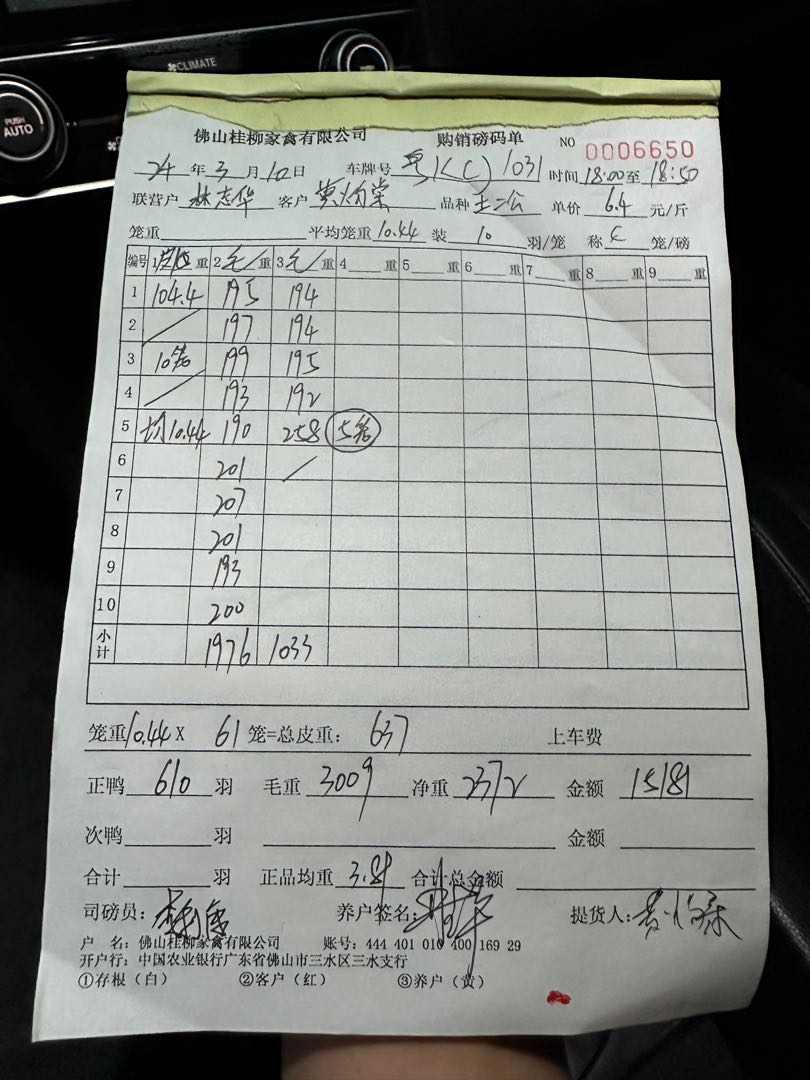 CLIMATE
PUSH
AUTO
佛山桂柳家禽有限公司 购销磅码单 NO 0006650
24 年 3 月 10 日 车牌号 粤K(C)1031 时间 18:00 至 18:50
联营户 林志华 客户 黄灿荣 品种 土二公 单价 6.4 元/斤
笼重 平均笼重 10.44 装 10 羽/笼 称 4 笼/磅
编号 1 重 2 毛/重 3 毛/重 4 重 5 重 6 重 7 重 8 重 9 重
1 104.4 195 194
2 / 197 194
3 10笼 199 195
4 / 193 192
5 均10.44 190 258 5笼
6 201 /
7 207
8 201
9 193
10 200
小计 1976 1033
笼重 10.44 X 61 笼=总皮重： 637 上车费
正鸭 610 羽 毛重 3009 净重 2372 金额 15181
次鸭 羽 金额
合计 羽 正品均重 3.89 合计总金额
司磅员： 养户签名： 提货人：
户 名：佛山桂柳家禽有限公司 账号：444 401 010 400 169 29
开户行：中国农业银行广东省佛山市三水区三水支行
①存根（白） ②客户（红） ③养户（黄）